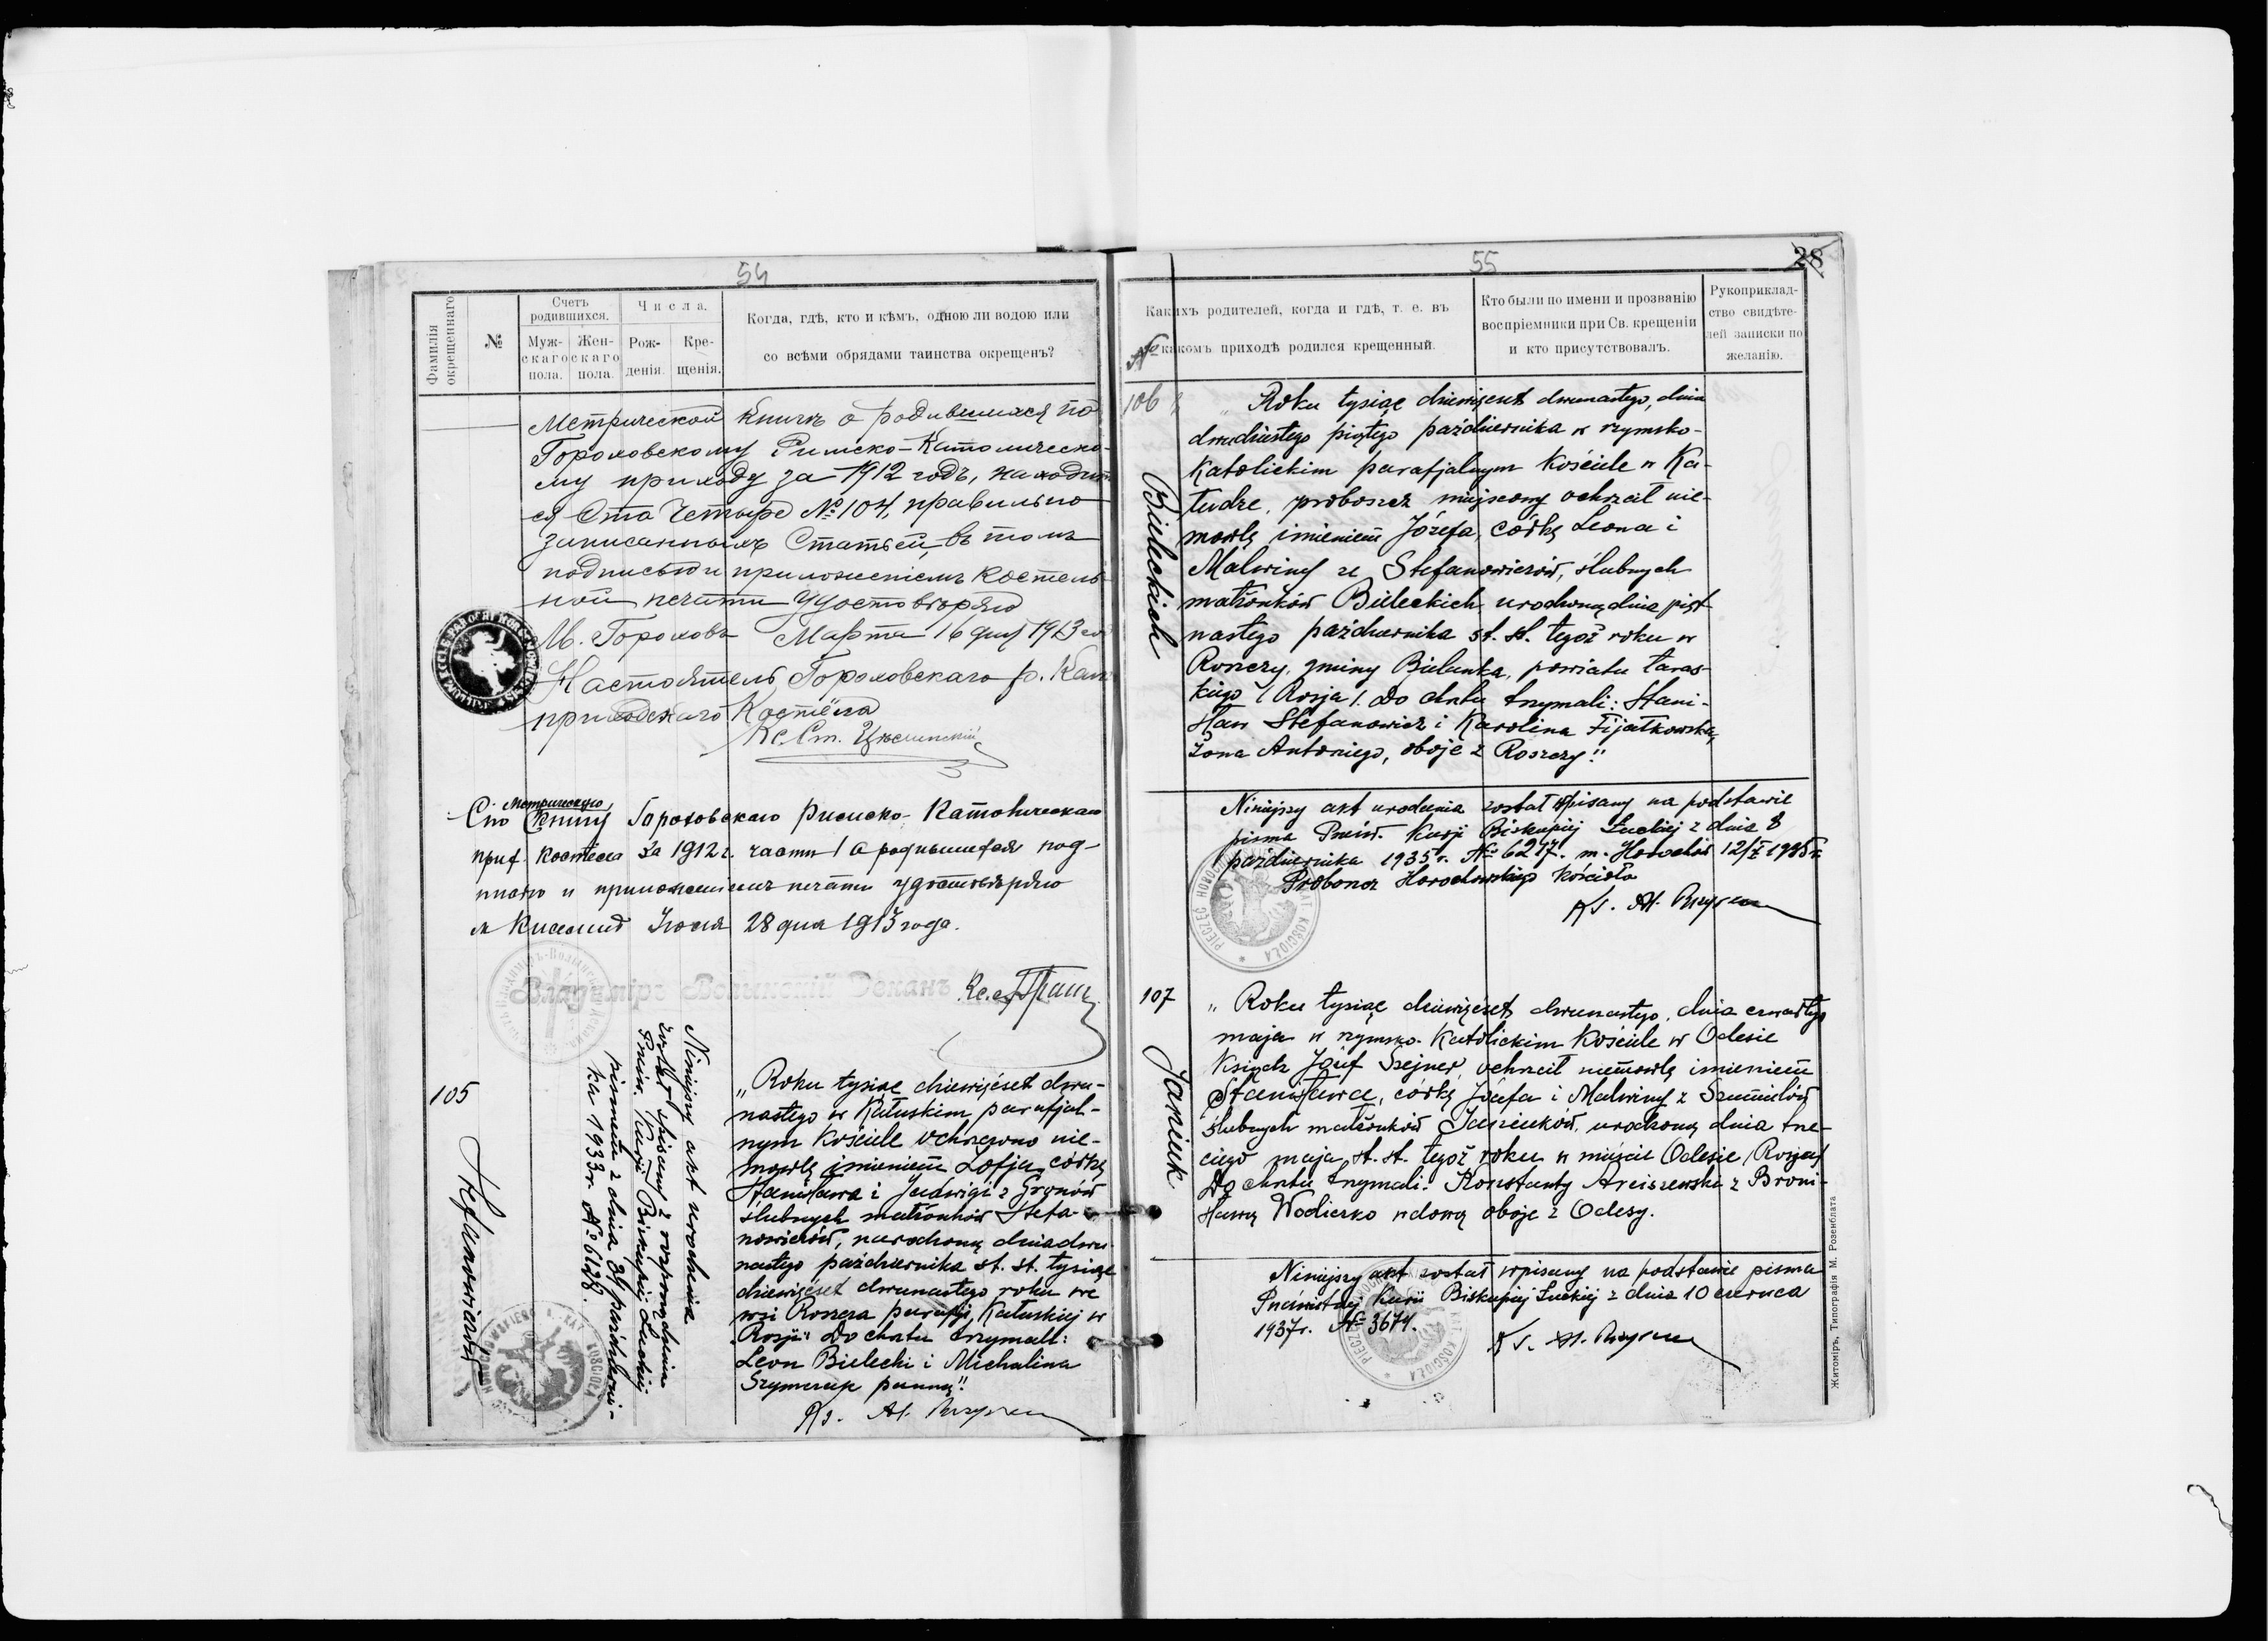 54
Фамилія окрещеннаго
№
Счетъ родившихся.
Мужскаго пола.
Женскаго пола.
Числа.
Рожденія.
Крещенія.
Когда, гдѣ, кто и кѣмъ, одною ли водою или
со всѣми обрядами таинства окрещенъ?
Метрической Книгѣ о родившихся по
Гороховскому Римско-Католическо-
му приходу за 1912 годъ, находит
ся Сто Четыре № 104, правильно
записанныхъ Статьей, въ томъ
подписью и приложеніемъ Костель-
ной печати удостовѣряю
М. Гороховъ Марта 16 дня 1913 год
Настоятель Гороховскаго р. Кат
приходскаго Костёла
Кс. Ст.
Сію Метрическую Книгу Гороховскаго Римско-Католическаго
приход. костела за 1912 г. части I о родившихся под-
писью и приложеніемъ печати удостовѣряю
м Киселинъ Іюня 28 дня 1913 года.
Владиміръ Волынскій Деканъ Кс.
105
Stefanowiczów
Niniejszy akt urodzenia
został spisany z rozporządzenia
Prześw. Kurji Biskupiej Łuckiej
pismem z dnia październi-
ka 1933 r. № 6138.
„Roku tysiąc dziewięćset dwu-
nastego w Kałuskim parafjal-
nym Kościele ochrzczono nie-
mowlę imieniem Zofja, córkę
Stanisława i Jadwigi z Gronów
ślubnych małżonków Stefa-
nowiczów, narodzoną dnia dwu-
nastego października st. st. tysiąc
dziewięćset dwunastego roku we
wsi Roszcza parafji Kałuskiej w
Rosji. Do chrztu trzymali:
Leon Bielecki i Michalina
panną".
Ks. Al.
55
28
№
Какихъ родителей, когда и гдѣ, т. е. въ
какомъ приходѣ родился крещенный.
Кто были по имени и прозванію
воспріемники при Св. крещеніи
и кто присутствовалъ.
Рукоприклад-
ство свидѣте-
лей записки по
желанію.
106
Bieleckich
„Roku tysiąc dziewięćset dwunastego, dnia
dwudziestego piątego października w rzymsko-
Katolickim parafjalnym Kościele w Ka-
łudze, proboszcz miejscowy ochrzcił nie-
mowlę imieniem Józefa, córkę Leona i
Malwiny ze Stefanowiczów, ślubnych
małżonków Bieleckich, urodzoną dnia pięt-
nastego października st. st. tegoż roku w
Roszczy, gminy Bielanka, powiatu taras-
kiego /Rosja/. Do chrztu trzymali: Stani-
sław Stefanowicz i Karolina Fijałkowska,
żona Antoniego, oboje z Roszczy".
Niniejszy akt urodzenia został wpisany na podstawie
pisma Prześw. Kurji Biskupiej Łuckiej z dnia 8
października 1935 r. № 6277. m. Horochów 12/X 1935 r.
Proboszcz Horochowskiego Kościoła
Ks. Al.
107
Janiuk
„Roku tysiąc dziewięćset dwunastego, dnia czwartego
maja w rzymsko-Katolickim Kościele w Odesie
Ksiądz Józef Szejner, ochrzcił niemowlę imieniem
Stanisława, córkę Józefa i Malwiny z
ślubnych małżonków Janiuków, urodzoną dnia trze-
ciego maja st. st. tegoż roku w mieście Odesie /Rosja/
Do chrztu trzymali: Konstanty Arciszewski z Broni-
sławą Wodierko wdową oboje z Odesy.
Niniejszy akt został wpisany na podstawie pisma
Prześwietnej Kurii Biskupiej Łuckiej z dnia 10 czerwca
1937 r. № 3674.
Ks. Al.
Житоміръ, Типографія М. Розенблата